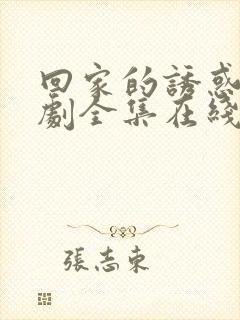 回家的誘惑
劇全集在綫
張志東